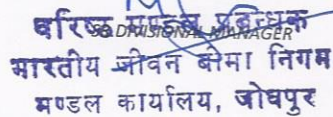 वरिष्ठ मण्डल प्रबन्धक
DIVISIONAL MANAGER
भारतीय जीवन बीमा निगम
मण्डल कार्यालय, जोधपुर